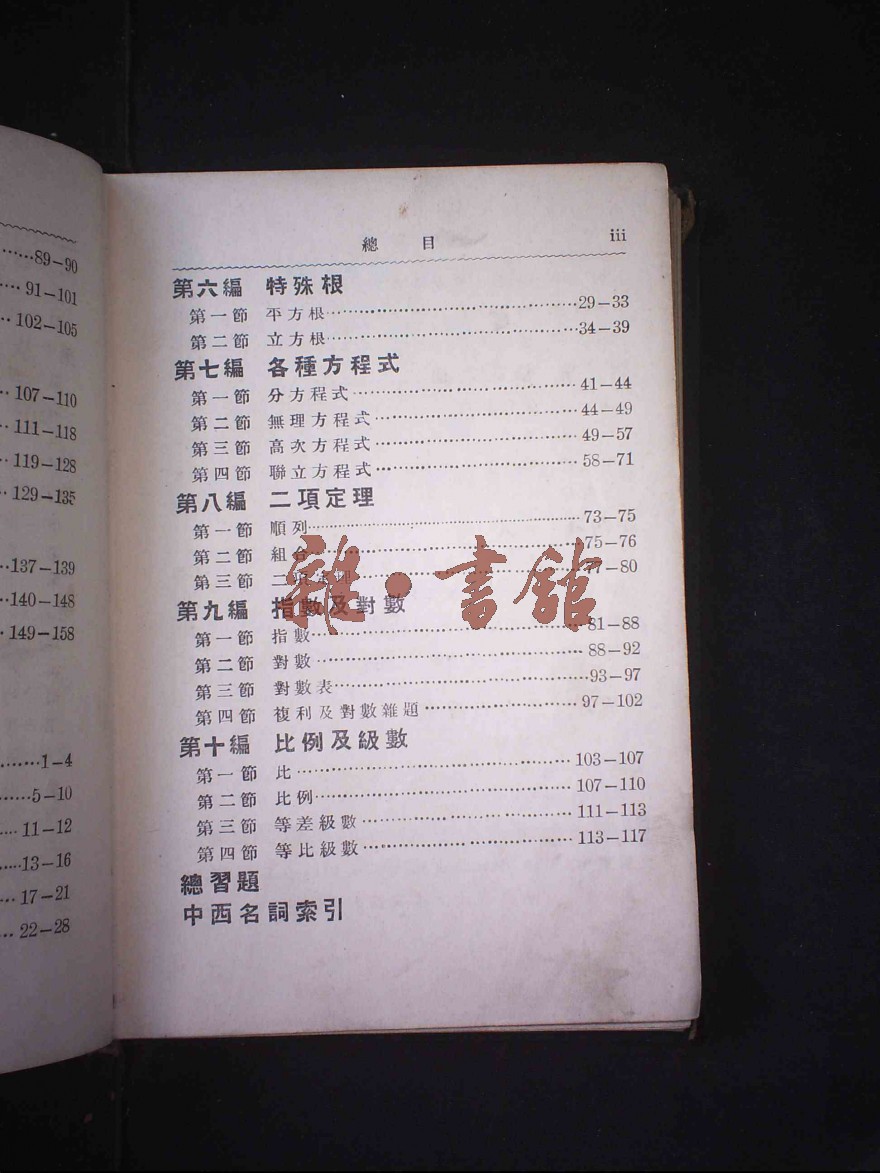 ……89—90
…91—101
…102—105
…107—110
…111—118
…119—128
…129—135
…137—139
…140—148
…149—158
……1—4
……5—10
……11—12
……13—16
…17—21
…22—28
總 目 iii
第六編 特殊根
第一節 平方根……29—33
第二節 立方根……34—39
第七編 各種方程式
第一節 分方程式……41—44
第二節 無理方程式……44—49
第三節 高次方程式……49—57
第四節 聯立方程式……58—71
第八編 二項定理
第一節 順列……73—75
第二節 組合……75—76
第三節 二項定理……77—80
第九編 指數及對數
第一節 指數……81—88
第二節 對數……88—92
第三節 對數表……93—97
第四節 複利及對數雜題……97—102
第十編 比例及級數
第一節 比……103—107
第二節 比例……107—110
第三節 等差級數……111—113
第四節 等比級數……113—117
總習題
中西名詞索引
雜·書館